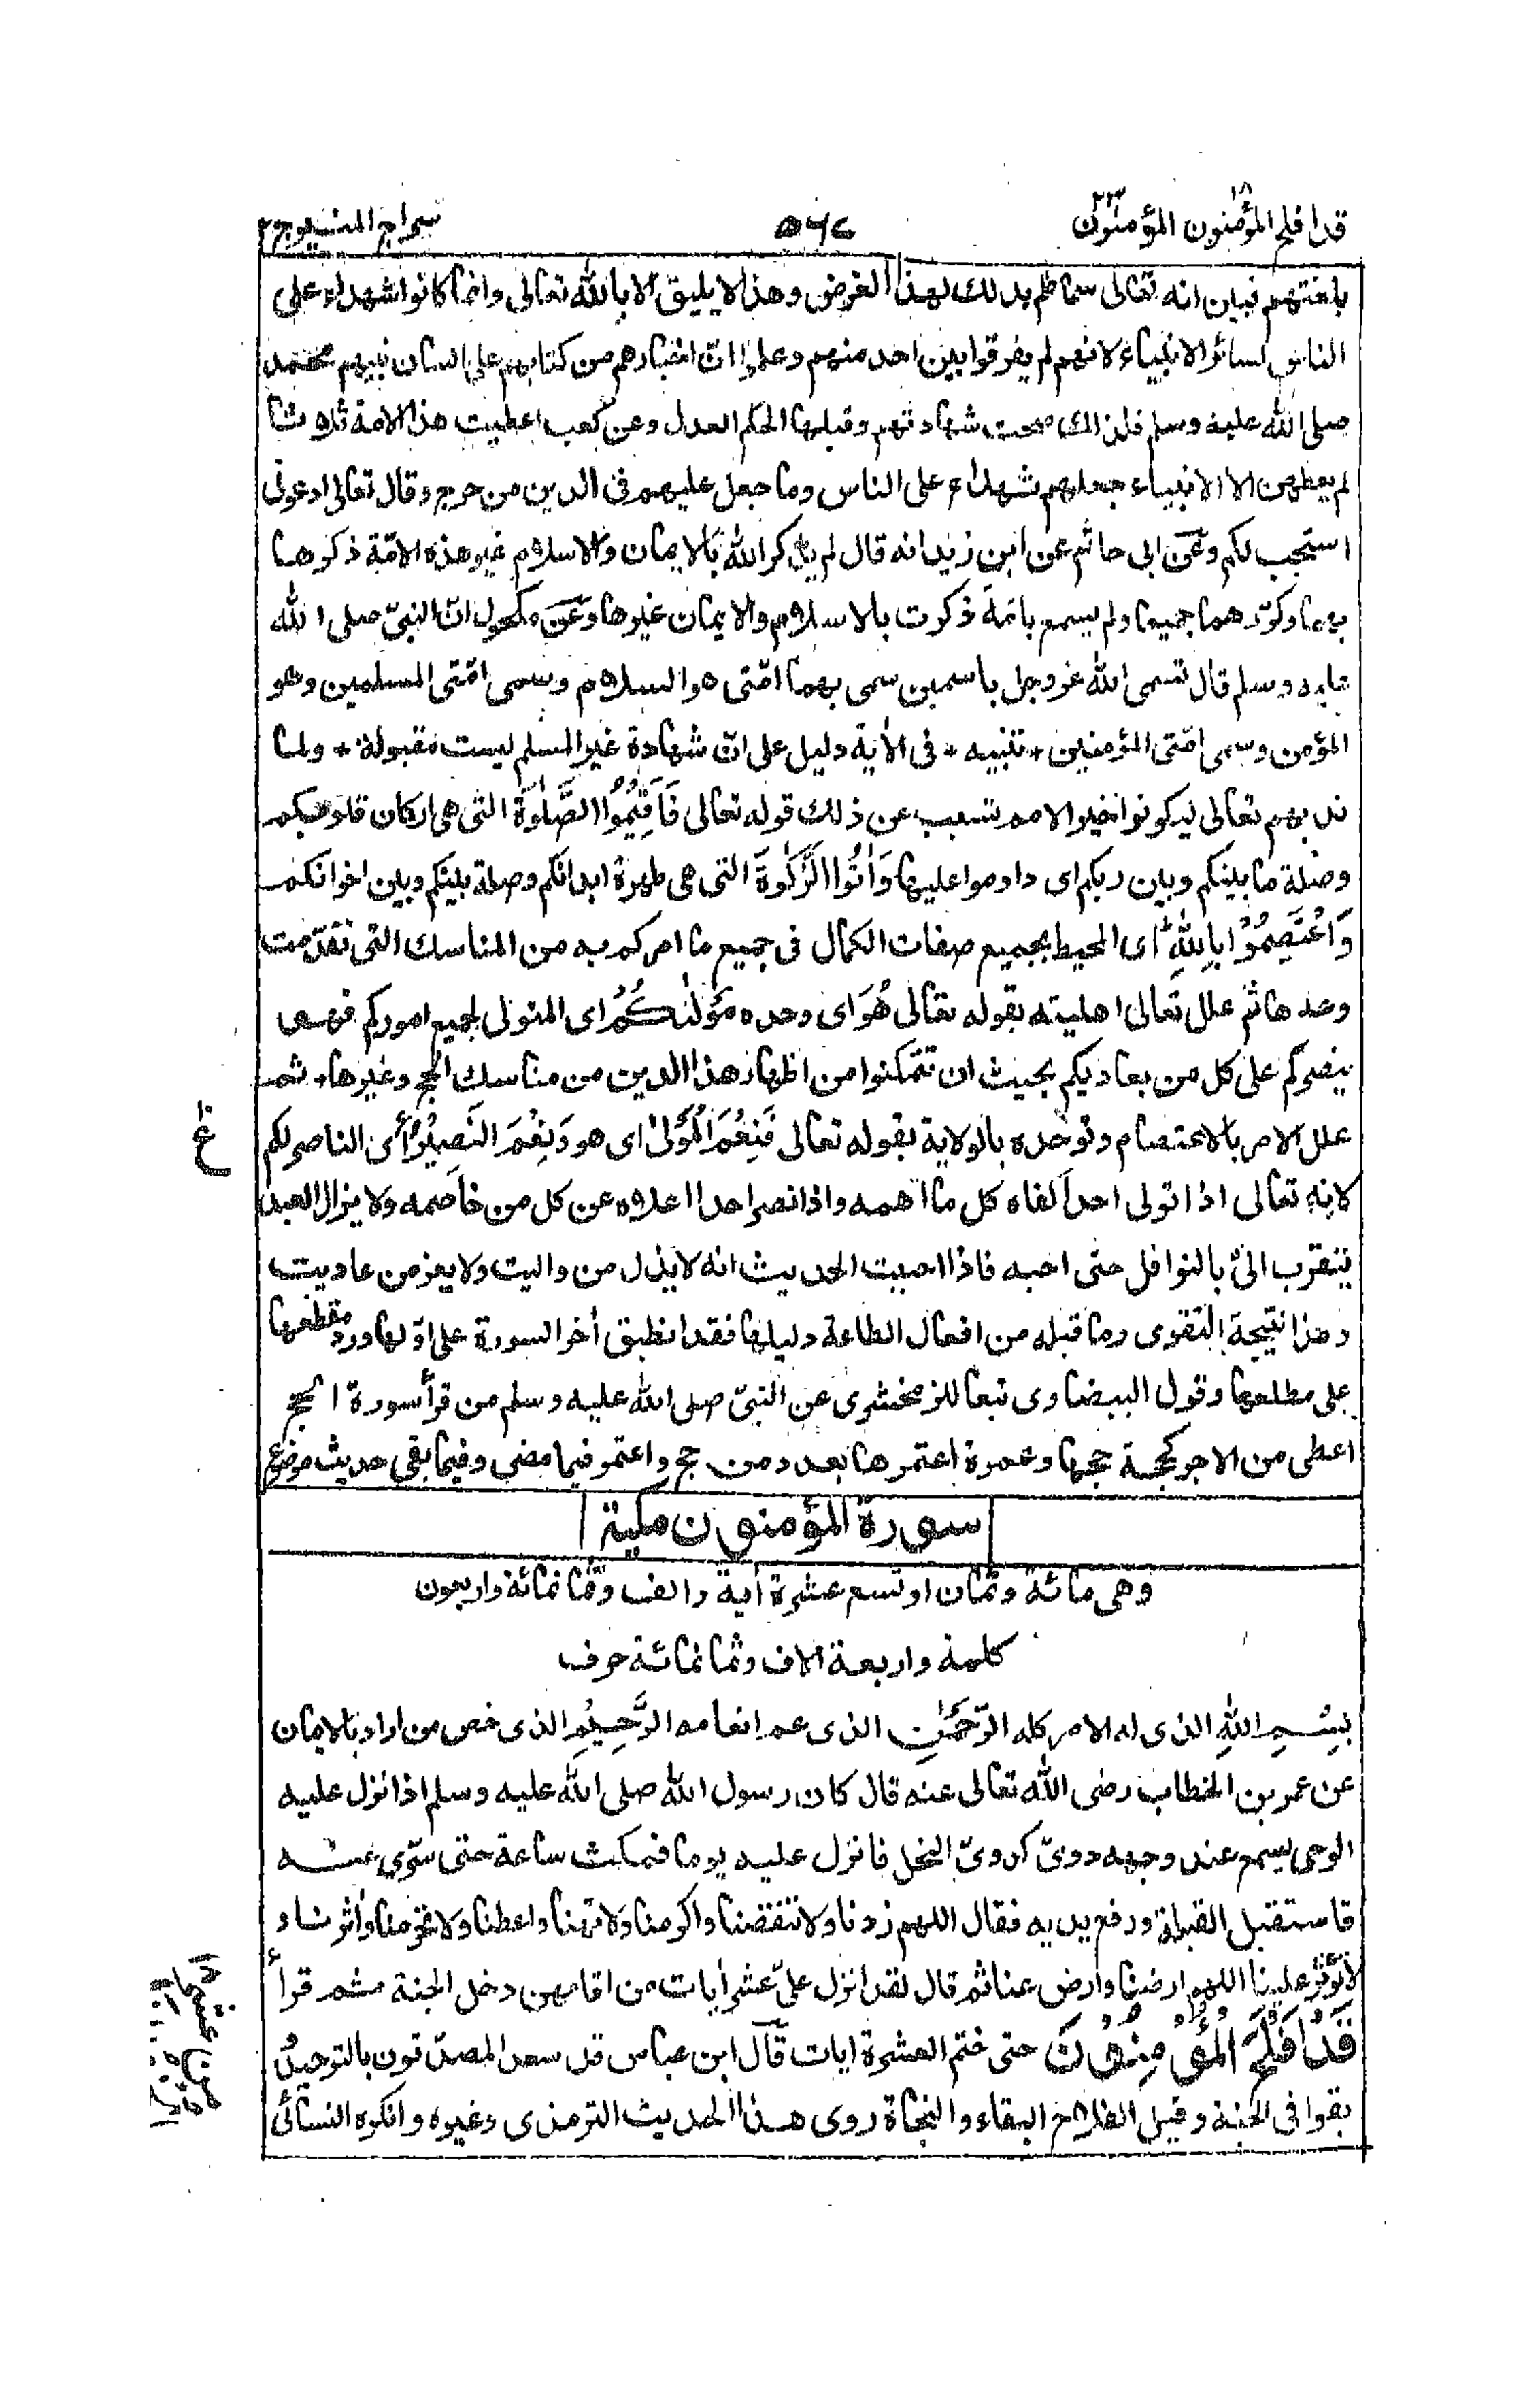 قد افلح المؤمنون ١٨ المؤمنون ٢٣
٥٦٢
سراج المنير ج ٢
بلغتهم فبين انه تعالى سماكم بذلك لهذا الغرض وهذا لا يليق الا بالله تعالى وانما كانوا شهداء على
الناس لسائر الانبياء لانهم لم يفرقوا بين احد منهم وعلموا انّ اخبارهم من كتابهم على لسان نبيهم محمد
صلى الله عليه وسلم فلذلك صحت شهادتهم وقبلها الحكم العدل وعن كعب اعطيت هذا الامة ثلاثا
لم يعطهن الا الانبياء جعلهم شهداء على الناس وما جعل عليهم فى الدين من حرج وقال تعالى ادعونى
استجب لكم وعن ابى حاتم عن ابن زيد انه قال لم يذكر الله بالايمان والاسلام غير هذه الامّة ذكرها
بهما وكرّرهما جميعا ولم يسمع بامّة ذكرت بالاسلام والايمان غيرها وعن مكحول انّ النبىّ صلى الله
عليه وسلم قال تسمى الله عز وجل باسمين سمى بهما امّتى هو السلام وسمى امّتى المسلمين وهو
المؤمن وسمى امّتى المؤمنين * تنبيه * فى الأية دليل على انّ شهادة غير المسلم ليست مقبولة * ولما
ندبهم تعالى ليكونوا خير الامم تسبب عن ذلك قوله تعالى فَاَقِيْمُوا الصَّلٰوةَ التى هى اركان قلوبكم
وصلة ما بينكم وبين ربكم اى داوموا عليها وَاٰتُوا الزَّكٰوةَ التى هى طهرة ابدانكم وصلة بينكم وبين اخوانكم
وَاعْتَصِمُوْا بِاللّٰهِ اى المحيط بجميع صفات الكمال فى جميع ما امركم به من المناسك التى تقدّمت
وغيرها ثم علل تعالى اهليته بقوله تعالى هُوَ اى وحده مَوْلٰىكُمْ اى المتولى لجميع اموركم فهو
ينصركم على كل من يعاديكم بحيث ان تتمكنوا من اظهار هذا الدين من مناسك الحج وغيرها ثم
علل الامر بالاعتصام وتوحده بالولاية بقوله تعالى فَنِعْمَ الْمَوْلٰى اى هو وَنِعْمَ النَّصِيْرُ اى الناصر لكم
لانه تعالى اذا تولى احدا كفاه كل ما اهمه واذا نصر احدا اعلاه عن كل من خاصمه ولا يزال العبد
يتقرب الىّ بالنوافل حتى احبه فاذا احببت الحديث انه لا يذل من واليت ولا يعز من عاديت
وهذا نتيجة التقوى وما قبله من افعال الطاعة دليلها فقد انطبق أخر السورة على اوّلها ورد مقطعها
على مطلعها وقول البيضاوى تبعا للزمخشرى عن النبىّ صلى الله عليه وسلم من قرأ سورة الحج
اعطى من الاجر كحجة حجها وعمرة اعتمرها بعدد من حج واعتمر فيما مضى وفيما بقى حديث موضوع
سورة المؤمنون مكية
وهى مائة وثمان او تسع عشرة أية والف وثمانمائة واربعون
كلمة واربعة ألاف وثمانمائة حرف
بِسْمِ اللّٰهِ الذى له الامر كله الرَّحْمٰنِ الذى عم انعامه الرَّحِيْمِ الذى خص من اراد بالايمان
عن عمر بن الخطاب رضى الله تعالى عنه قال كان رسول الله صلى الله عليه وسلم اذا نزل عليه
الوحى يسمع عند وجهه دوىّ كدوىّ النحل فانزل عليه يوما فمكث ساعة حتى سرّى عنه
فاستقبل القبلة ورفع يديه فقال اللهم زدنا ولا تنقصنا واكرمنا ولا تهنا واعطنا ولا تحرمنا وأثرنا و
لا تؤثر علينا اللهم ارضنا وارض عنا ثم قال لقد انزل علىّ عشر أيات من اقامهن دخل الجنة ثم قرأ
قَدْ اَفْلَحَ الْمُؤْمِنُوْنَ حتى ختم العشرة ايات قال ابن عباس قد سعد المصدّقون بالتوحيد و
بقوا فى الجنة وقيل الفلاح البقاء والنجاة روى هذا الحديث الترمذى وغيره وانكره النسائى